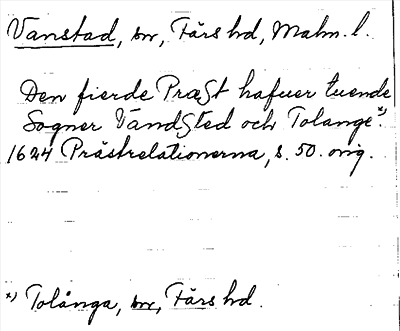 Vanstad, sn, Färs hd, Malm. l.
Den fierde Præst hafuer tuende
Sogner Vandsted och Tolange. *)
1624 Prästrelationerna, s. 50. orig.
*) Tolånga, sn, Färs hd.